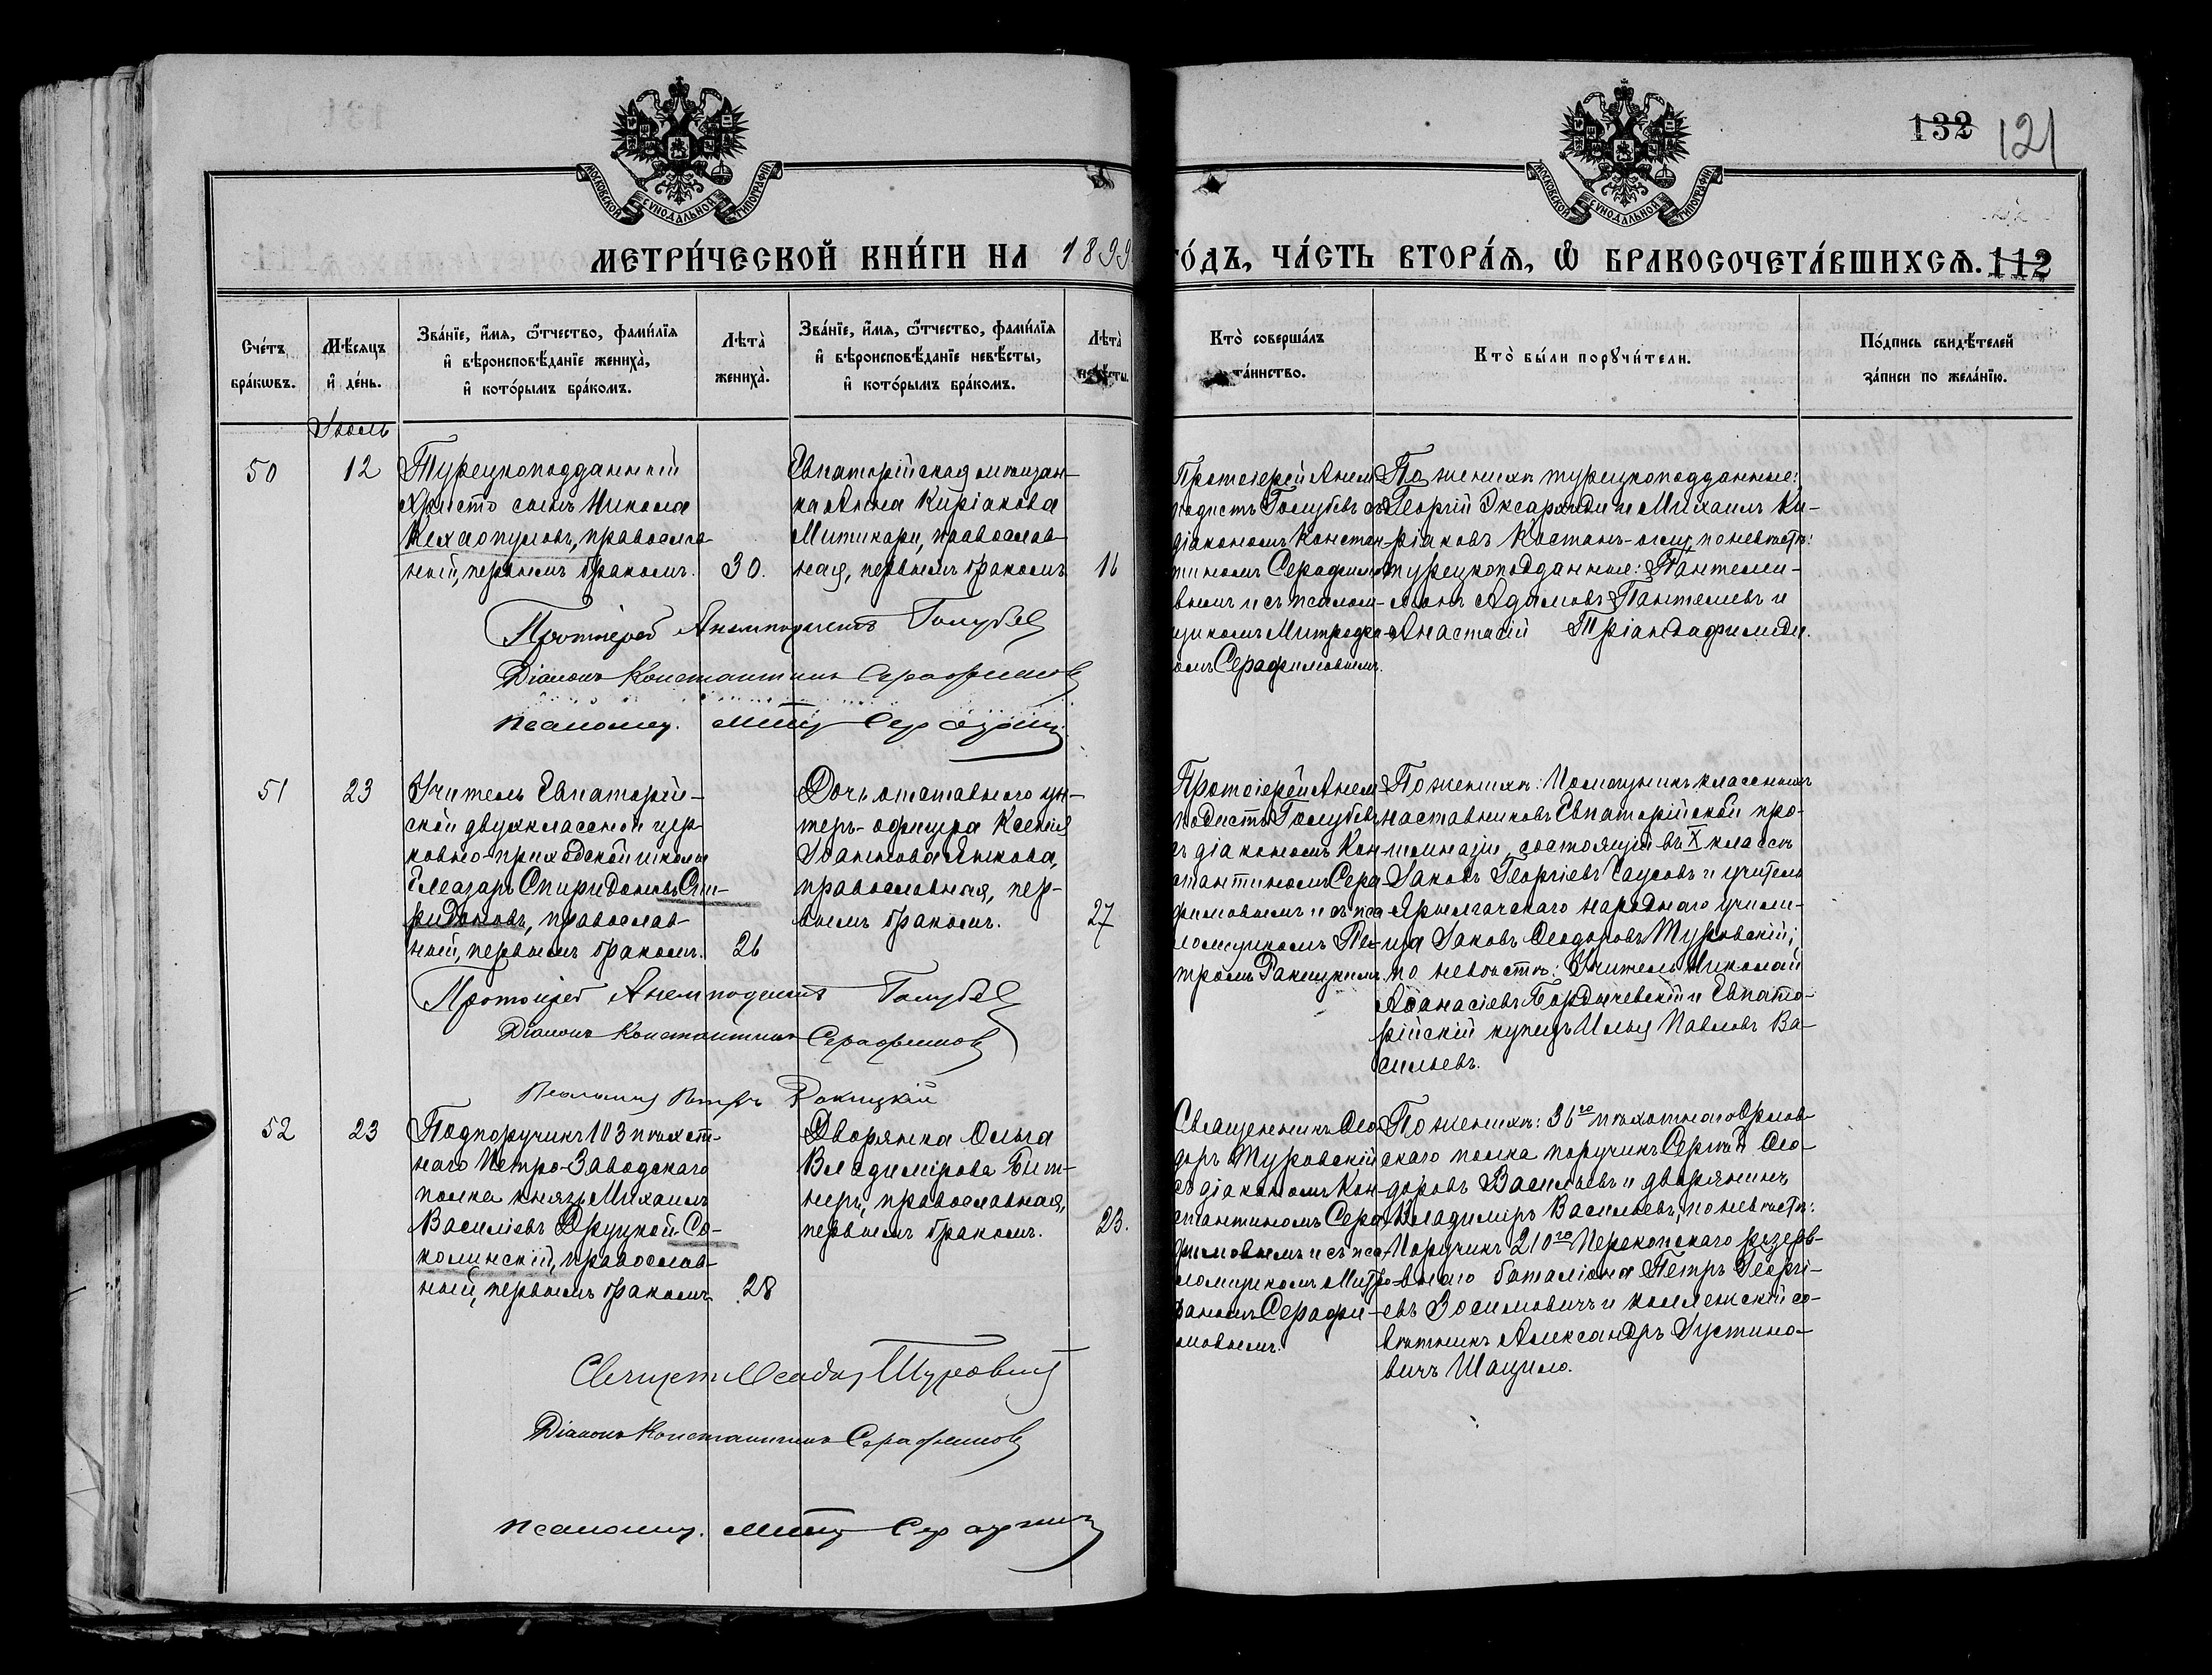 132 121
МОСКОВСКОЙ СѴНОДАЛЬНОЙ ТИПОГРАФІИ
МОСКОВСКОЙ СѴНОДАЛЬНОЙ ТИПОГРАФІИ
МЕТРИ́ЧЕСКОЙ КНИ́ГИ НА 1899
ГО́ДЪ, ЧА́СТЬ ВТОРА́Ѧ, Ѡ БРАКОСОЧЕТА́ВШИХСѦ. 112
Сче́тъ бра́кѡвъ.
Мѣ́сяцъ и҆ де́нь.
Зва́нїе, и҆́мя, ѻ҆́тчество, фами́лїя
и҆ вѣроисповѣ́данїе жениха̀,
и҆ кото́рымъ бра́комъ.
Лѣта̀ жениха̀.
Зва́нїе, и҆́мя, ѻ҆́тчество, фами́лїя
и҆ вѣроисповѣ́данїе невѣ́сты,
и҆ кото́рымъ бра́комъ.
Лѣта̀ невѣ́сты.
Кто̀ соверша́лъ
та́инство.
Кто̀ бы́ли порꙋчи́тели.
По́дпись свидѣ́телей
за́писи по жела́нїю.
Іюль
50
12
Турецкоподданный
Христо сынъ Никола
православ
ный, первымъ бракомъ.
30.
Евпаторійская мѣщан-
ка Анна Киріакова
Митикари, православ
ная, первымъ бракомъ
16
Протоіерей Анем
подистъ Голубевъ съ
діакономъ Констан-
тиномъ Серафимо
вымъ и съ псалом-
щикомъ Митрофа
омъ Серафимовымъ.
По женихѣ турецкоподданные:
Георгій Эксархиди и Михаилъ Ки-
ріаковъ Костанъ-оглу, по невѣстѣ:
турецкоподданные: Пантели-
Адамовъ Пантелиевъ и
Анастасій Тріандафилиди.
Протоіерей Анемподистъ Голубев
Діаконъ Константинъ Серафимов
псаломщ. Митр Серафим
51
23
Учитель Евпаторій-
ской двухклассной цер
ковно-приходской школы
Елеазаръ Спиридоновъ Спи-
ридоновъ, православ
ный, первымъ бракомъ.
26
Дочь отставного ун-
теръ-офицера Ксенія
Іоаннова Лыкова,
православная, пер-
вымъ бракомъ.
27
Протоіерей Анем
подистъ Голубевъ
съ діакономъ Кон
стантиномъ Сера
фимовымъ и съ пса
ломщикомъ Пе-
тромъ Ракицкимъ
По женихѣ: Помощникъ классныхъ
наставниковъ Евпаторійской про-
гимназіи, состоящій въ X классѣ
Іаковъ Георгіевъ Саусовъ и учитель
Ярылгачскаго народнаго учили-
ща Іаковъ Ѳеодоровъ Туровскій;
по невѣстѣ: Учитель Николай
Аѳанасіевъ Бордычевскій и Евпато-
рійскій купецъ Илья Павловъ Ва-
сильевъ.
Протоіерей Анемподистъ Голубев
Діаконъ Константинъ Серафимов
Псаломщ Петръ Ракицкій
52
23
Подпоручикъ 103 пѣхот-
наго Петро-Заводскаго
полка князь Михаилъ
Василіевъ Друцкой-Со-
колинскій, православ-
ный, первымъ бракомъ
28
Дворянка Ольга
Владимірова Бит-
неръ, православная,
первымъ бракомъ.
23.
Священникъ Ѳео
доръ Туровскій
съ діакономъ Кон-
стантиномъ Сера
фимовымъ и съ пса
ломщикомъ Митро-
фаномъ Серафи-
мовымъ.
По женихѣ: 36го пѣхотнаго Орлов-
скаго полка поручикъ Сергѣй Ѳео-
доровъ Васильевъ и дворянинъ
Владиміръ Васильевъ, по невѣстѣ:
Поручикъ 210го Перекопскаго резерв-
наго баталіона Петръ Георгі-
евъ Зосимовичъ и коллежскій со-
вѣтникъ Александръ Іустино-
вичъ Шацило.
Священ Ѳеодор Туровскій
Діаконъ Константинъ Серафимов
псаломщ. Митр Серафим